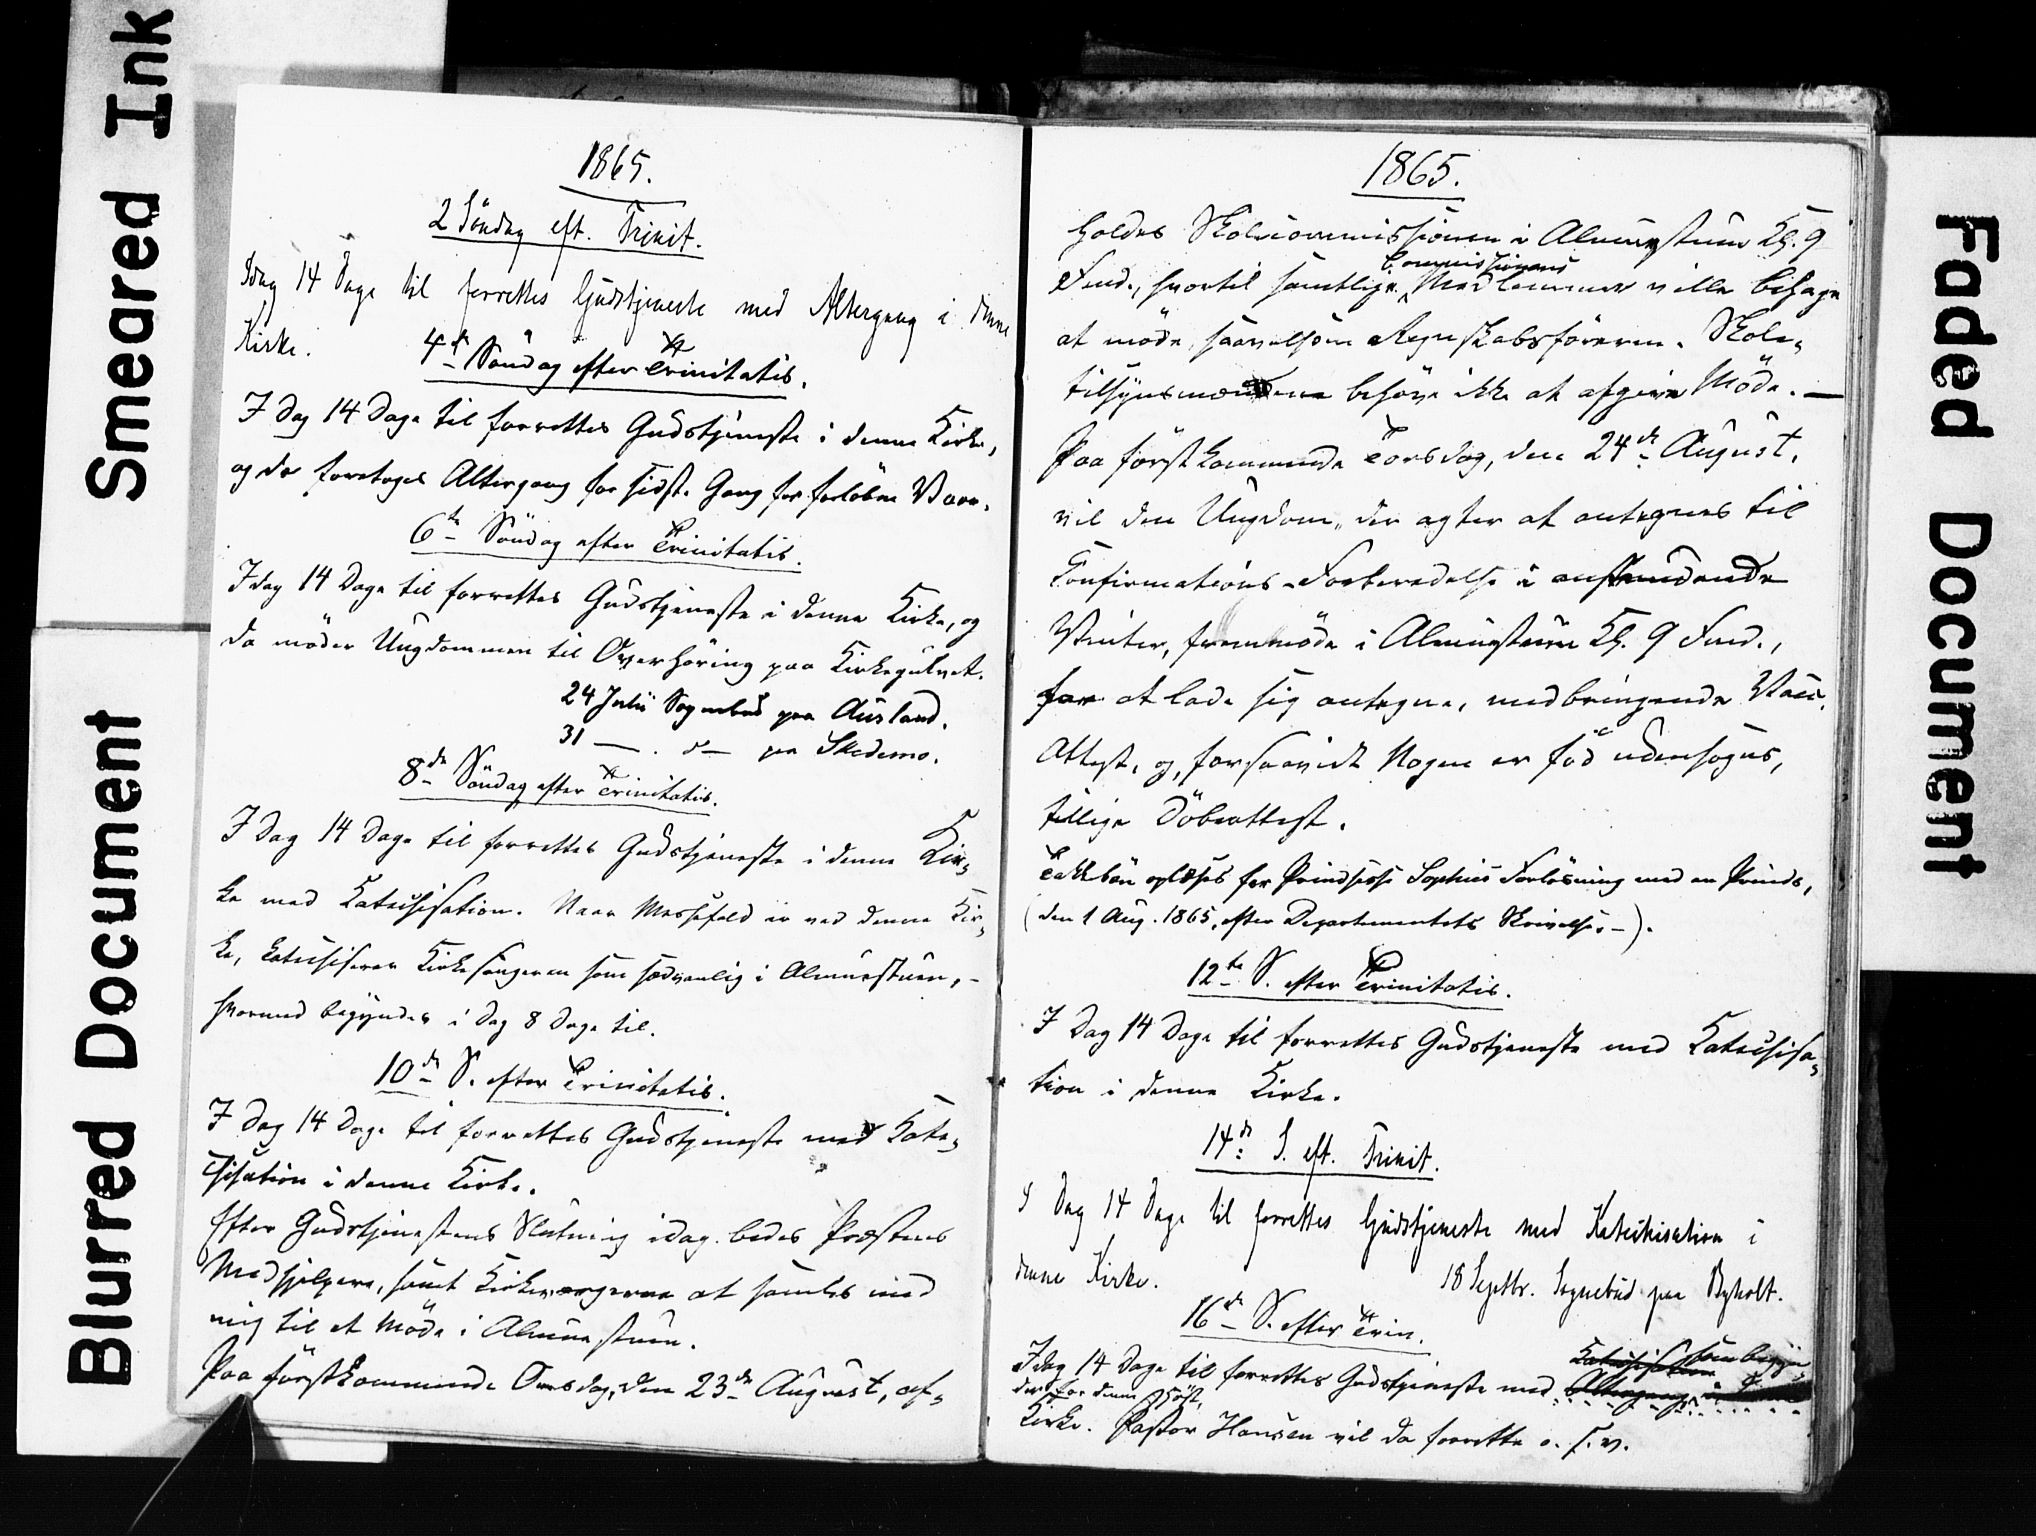 Smeared Ink
Blurred Document
1865.
2 Söndag eft. Trinit.
Idag 14 Dage til forrettes Gudstjeneste med Altergang i denne
Kirke.
4de Söndag efter Trinitatis.
I Dag 14 Dage til forrettes Gudstjeneste i denne Kirke,
og da foretages Altergang for sidste Gang for forløbne Vaar.
6te Söndag efter Trinitatis.
I dag 14 Dage til forrettes Gudstjeneste i denne Kirke, og
da möder Ungdommen til Overhöring paa Kirkegulvet.
24 Julii Sognebud paa Ausland.
31 — . d— pa Skedemo.
8de Söndag efter Trinitatis.
I Dag 14 Dage til forrettes Gudstjeneste i denne Kir-
ke med Katechisation. Naar Messefald er ved denne Kir-
ke, katechiserer Kirkesangeren som sædvanlig i Almuestuen, -
hvormed begyndes i Dag 8 Dage til.
10de S. efter Trinitatis.
I Dag 14 Dage til forrettes Gudstjeneste med Kate-
chisation i denne Kirke.
Efter Gudstjenestens Slutning idag bedes Præstens
Medhjelpere, samt Kirkeværgerne at samles med
mig til et Möde i Almuestuen.
Paa förstkommende Onsdag, den 23de August, af-
1865.
holdes Skolecommissionen i Almuestuen Kl. 9
Commissionens
Fmd., hvortil samtlige Medlemmer ville behage
at möde, saavelsom Regnskabsföreren. Skole-
tilsynsmændene behöve ikke at afgive Möde. —
Paa förstkommende Torsdag, den 24de August,
vil den Ungdom, der agter at antegnes til
Confirmations-Forberedelse i anstundende
Vinter, fremmöde i Almuestuen Kl. 9 Fmd.,
for at lade sig antegne, medbringende Vacc.
Attest, og, forsaavidt Nogen er föd udensogns,
tillige Döbeattest.
Takkebön oplæses for Prindsesse Sophies Forlösning med en Prinds,
(den 1 Aug. 1865, efter Departementets Skrivelse. -).
12te S. efter Trinitatis.
I Dag 14 Dage til forrettes Gudstjeneste med Katechisa-
tion i denne Kirke.
14de S. eft. Trinit.
I Dag 14 Dage til forrettes Gudstjeneste med Katechisation i
denne Kirke. 18 Septbr. Sognebud paa Byholt.
16de S. efter Trin.
Katechisation som begyn-
Idag 14 Dage til forrettes Gudstjeneste med Altergang i denne
der for denne Höst,
Kirke. Pastor Hansen vil da forrette o. s. v.
Faded Document